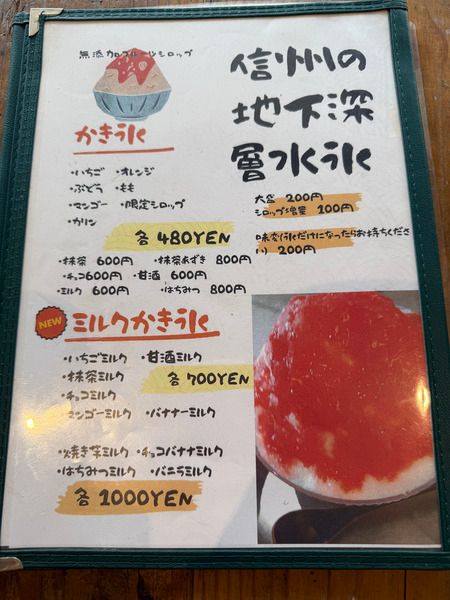 無添加フルーツシロップ
かき氷
・いちご ・オレンジ
・ぶどう ・もも
・マンゴー ・限定シロップ
・カリン
各 480YEN
・抹茶 600円 ・抹茶あずき 800円
・チョコ 600円 ・甘酒 600円
・ミルク 600円 ・はちみつ 800円
信州の
地下深
層水氷
大盛 200円
シロップ増量 100円
味変(氷だけになったらお持ちくださ
い) 200円
NEW
ミルクかき氷
・いちごミルク ・甘酒ミルク
・抹茶ミルク
各 700YEN
・チョコミルク
マンゴーミルク ・バナナーミルク
・焼き芋ミルク ・チョコバナナミルク
・はちみつミルク ・バニラミルク
各 1000YEN